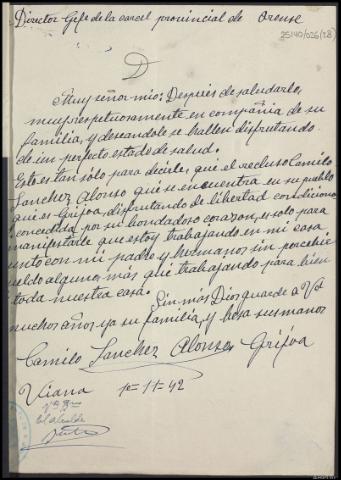 Director Gefe de la carcel provincial de Orense
25140/026(28)
D
Muy señor mio: Después de saludarlo,
muy respetuosamente en compañia de su
familia, y deseandole se hallen disfrutando
de un perfecto estado de salud.
Esto es tan sólo para decirle, que el recluso Camilo
Sanchez Alonso que se encuentra en su pueblo
que es Grijoa, disfrutando de libertad condiciona
concedida por su bondadoso corazon, es solo para
manifestarle que estoy trabajando en mi casa
unto con mi padre y hermanos sin percibir
sueldo alguno, más que trabajando para bien
toda nuestra casa.
Sin más Dios guarde a Vd
muchos años ya su familia, y besa sus manos
Camilo Sanchez Alonso Grijoa
Viana 1º-11-42
Vº Bº
El alcalde